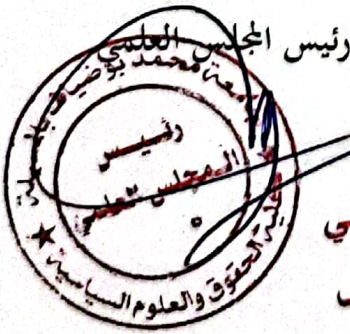 رئيس المجلس العلمي
جامعة محمد بوضياف بالمسيلة
رئيس
المجلس العلمي
كلية الحقوق والعلوم السياسية